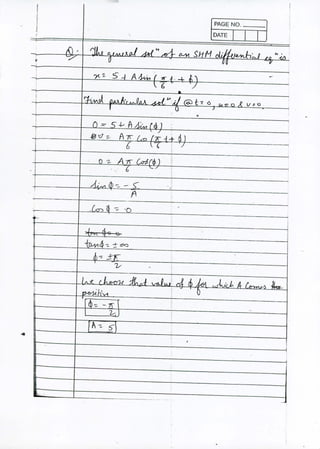 PAGE NO.
DATE
Q:- The general solⁿ of an SHM differential eqⁿ is
x = 5 + A sin (π/6 t + ϕ)
Find particular solⁿ if @ t = 0, x = 0 & v = 0.
0 = 5 + A sin(ϕ)
v = Aπ/6 Cos (π/6 t + ϕ)
0 = Aπ/6 Cos(ϕ)
sin ϕ = - 5/A
Cos ϕ = 0
tan ϕ = ± ∞
ϕ = ± π/2
We choose that value of ϕ for which A comes
positive
ϕ = - π/2
A = 5